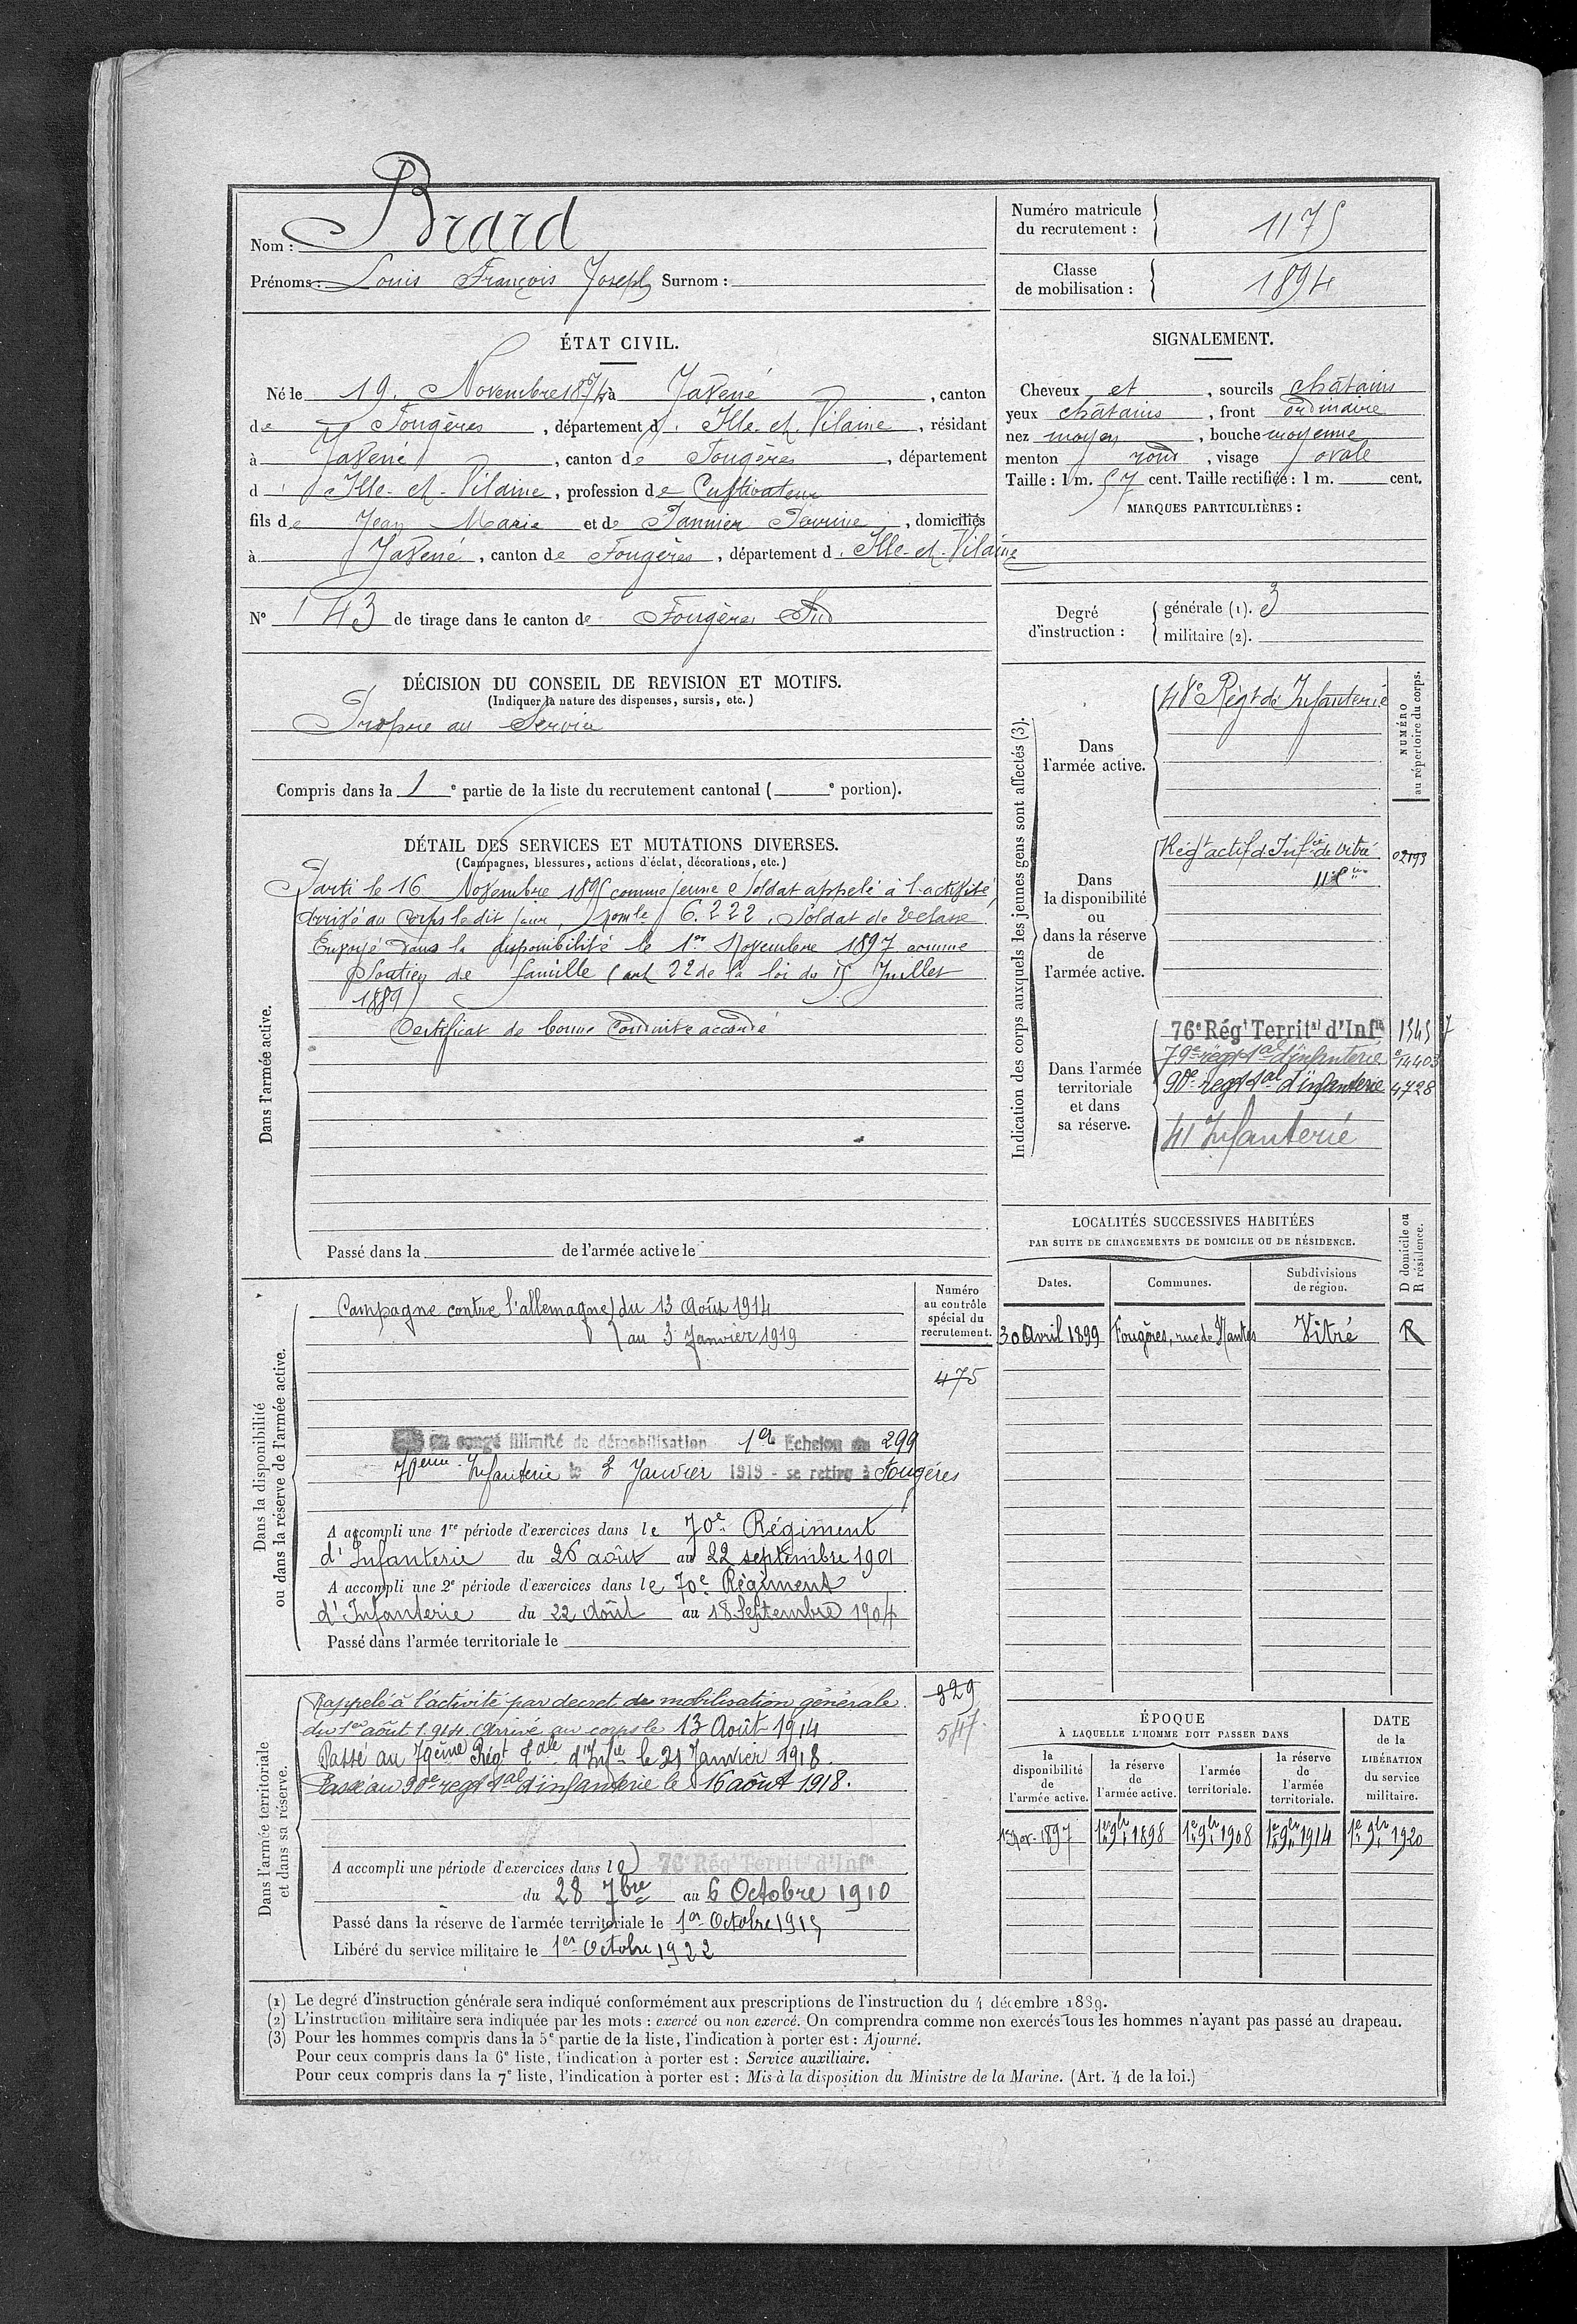 Nom : Brard
Prénoms : Louis François Joseph Surnom :
Numéro matricule du recrutement : 1175
Classe de mobilisation : 1894
ÉTAT CIVIL.
Né le 19 Novembre 1874 à Javené, canton
de Fougères, département d'Ille-et-Vilaine, résidant
à Javené, canton de Fougères, département
d'Ille-et-Vilaine, profession de Cultivateur
fils de Jean Marie et de Pannier Perrine, domiciliés
à Javené, canton de Fougères, département d'Ille-et-Vilaine
N° 143 de tirage dans le canton de Fougères Sud
DÉCISION DU CONSEIL DE REVISION ET MOTIFS.
(Indiquer la nature des dispenses, sursis, etc.)
Propre au Service
Compris dans la 1e partie de la liste du recrutement cantonal ( e portion).
SIGNALEMENT.
Cheveux et, sourcils châtains
yeux châtains, front ordinaire
nez moyen, bouche moyenne
menton rond, visage ovale
Taille : 1 m. 57 cent. Taille rectifiée : 1 m. cent.
MARQUES PARTICULIÈRES :
Degré d'instruction :
générale (1). 3
militaire (2).
DÉTAIL DES SERVICES ET MUTATIONS DIVERSES.
(Campagnes, blessures, actions d'éclat, décorations, etc.)
Dans l'armée active.
Parti le 16 Novembre 1895 comme jeune Soldat appelé à l'activité,
Arrivé au Corps le dit jour, 6.222, Soldat de 2e classe
Envoyé dans la disponibilité le 1er Novembre 1897 comme
soutien de famille (art 22 de la loi du 15 Juillet
1889)
Certificat de bonne Conduite accordé
Passé dans la de l'armée active le
Indication des corps auxquels les jeunes gens sont affectés (3).
NUMÉRO au répertoire du corps.
Dans l'armée active.
48e Régt de Infanterie
Dans la disponibilité ou dans la réserve de l'armée active.
Régt actif d'Infie de Vitré 02193
Dans l'armée territoriale et dans sa réserve.
76e Régt Territal d'Infie 1545 7
79e régt tal d'infanterie 14403
90e régt tal d'infanterie 4728
41 Infanterie
LOCALITÉS SUCCESSIVES HABITÉES
PAR SUITE DE CHANGEMENTS DE DOMICILE OU DE RÉSIDENCE.
Dates. Communes. Subdivisions de région. D domicile ou R résidence.
30 Avril 1899 Fougères, rue de Nantes Vitré R
Dans la disponibilité ou dans la réserve de l'armée active.
Numéro au contrôle spécial du recrutement.
475
Campagne contre l'allemagne du 13 Août 1914
au 3 Janvier 1919
en congé illimité de démobilisation 1er Echelon 299
70eme Infanterie le 3 Janvier 1919 - se retire à Fougères
A accompli une 1re période d'exercices dans le 70e Régiment
d'Infanterie du 26 août au 22 septembre 1901
A accompli une 2e période d'exercices dans le 70e Régiment
d'Infanterie du 22 Août au 18 Septembre 1904
Passé dans l'armée territoriale le
Dans l'armée territoriale et dans sa réserve.
329
547
Rappelé à l'activité par decret de mobilisation générale
du 1er août 1914. Arrivé au corps le 13 Août 1914
Passé au 79ème Régt tale d'Infie le 21 Janvier 1918.
Passé au 90e régt tal d'infanterie le 16 août 1918.
A accompli une période d'exercices dans le 76e Régt Territal d'Infie
du 28 7bre au 6 Octobre 1910
Passé dans la réserve de l'armée territoriale le 1er Octobre 1915
Libéré du service militaire le 1er Octobre 1922
ÉPOQUE
À LAQUELLE L'HOMME DOIT PASSER DANS
la disponibilité de l'armée active. la réserve de l'armée active. l'armée territoriale. la réserve de l'armée territoriale.
DATE de la LIBÉRATION du service militaire.
1er Nov. 1897 1er 9bre 1898 1er 9bre 1908 1er 9bre 1914 1er 9bre 1920
(1) Le degré d'instruction générale sera indiqué conformément aux prescriptions de l'instruction du 4 décembre 1889.
(2) L'instruction militaire sera indiquée par les mots : exercé ou non exercé. On comprendra comme non exercés tous les hommes n'ayant pas passé au drapeau.
(3) Pour les hommes compris dans la 5e partie de la liste, l'indication à porter est : Ajourné.
Pour ceux compris dans la 6e liste, l'indication à porter est : Service auxiliaire.
Pour ceux compris dans la 7e liste, l'indication à porter est : Mis à la disposition du Ministre de la Marine. (Art. 4 de la loi.)